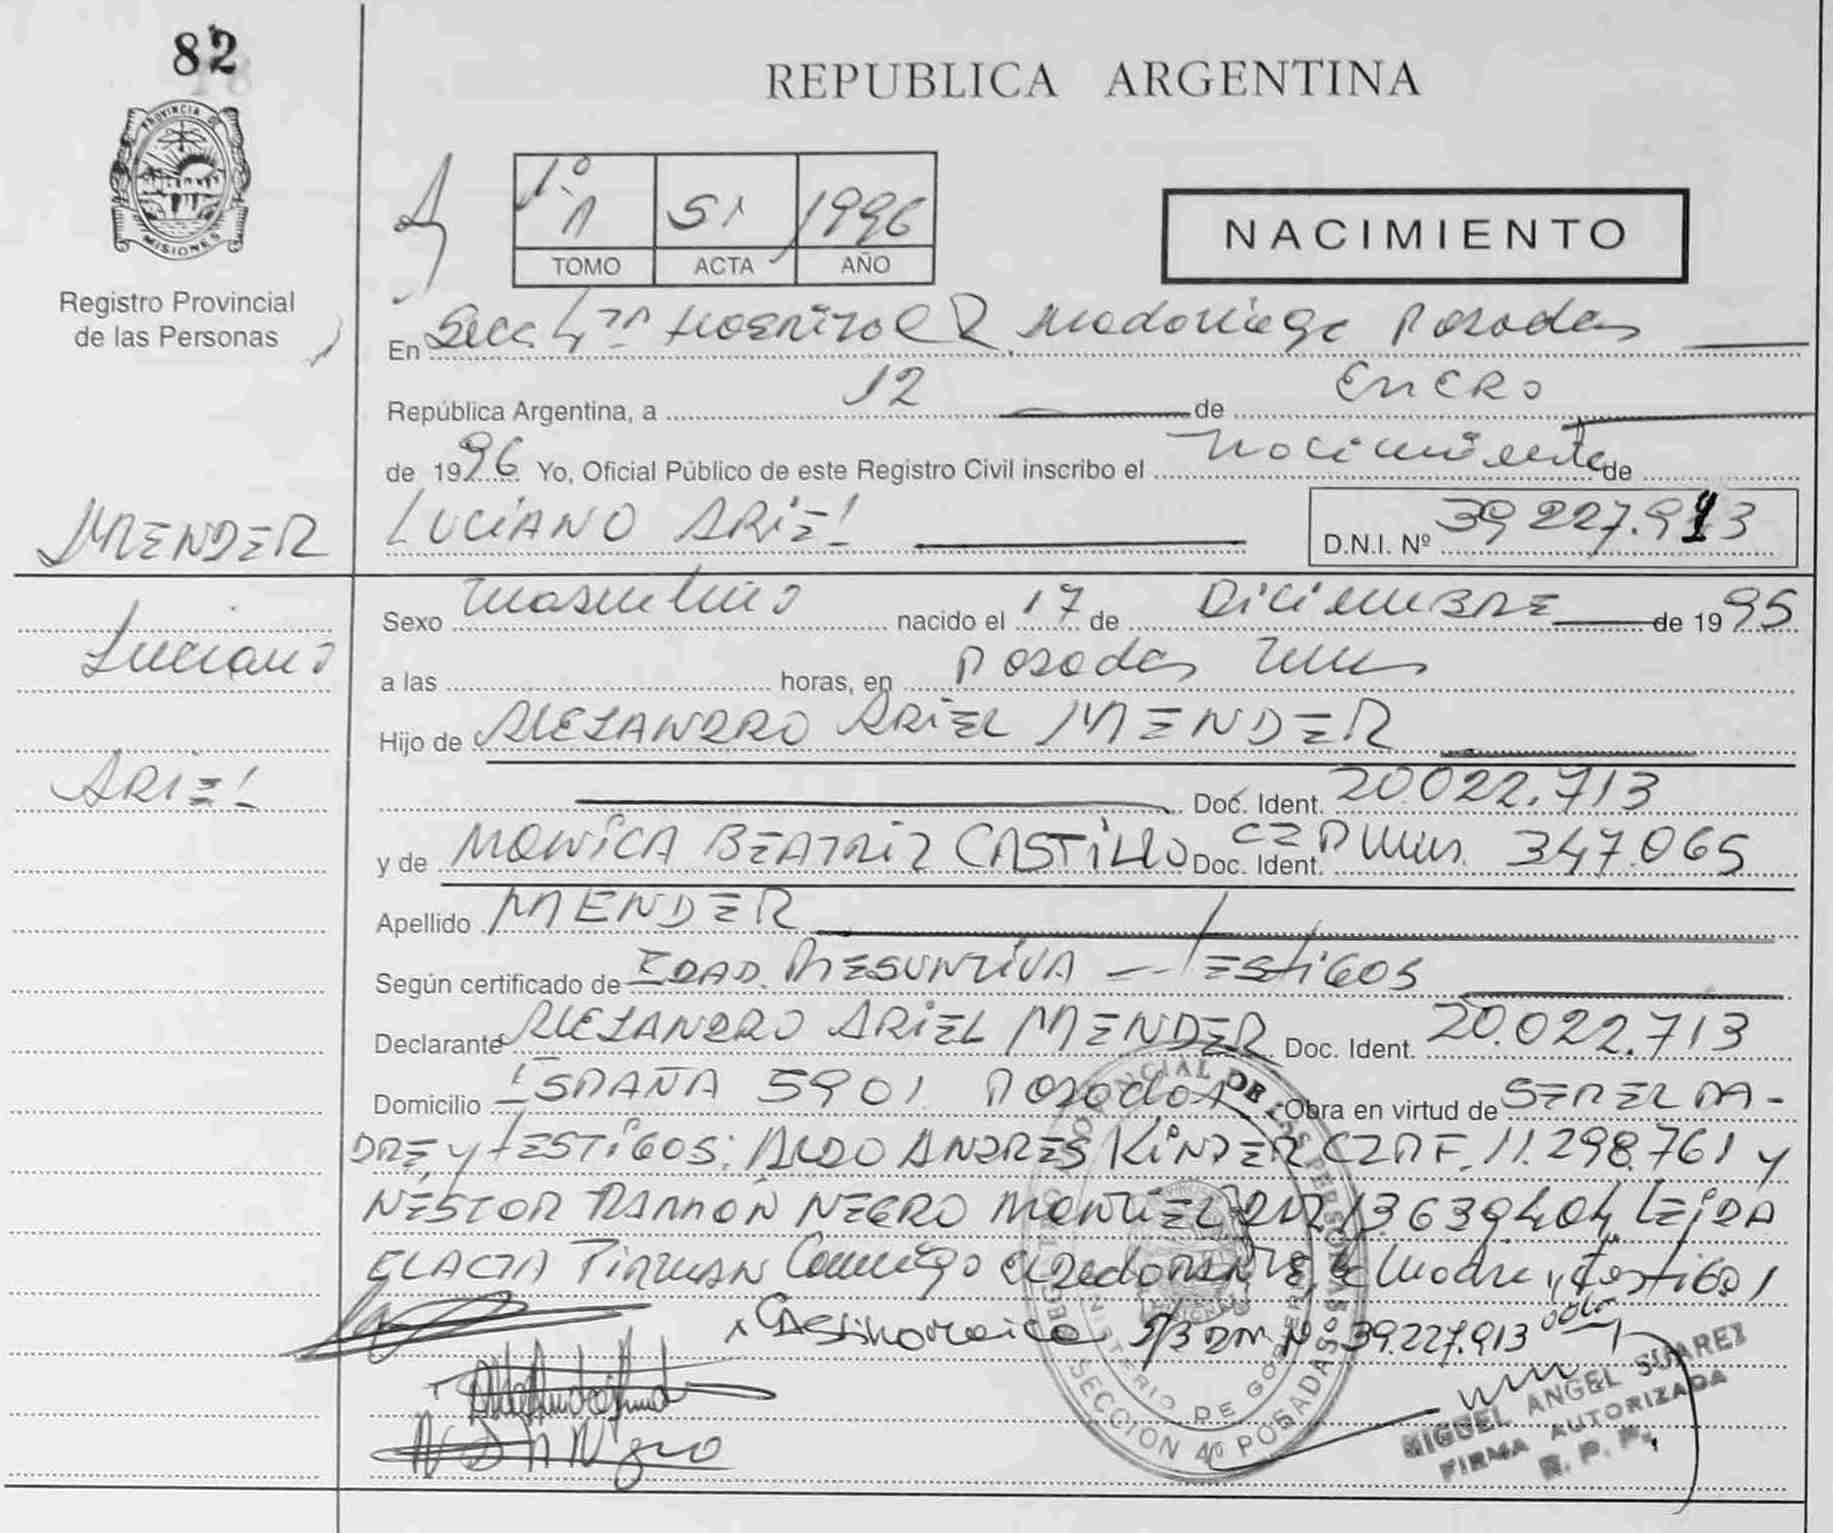 82
REPUBLICA ARGENTINA
PROVINCIA DE
MISIONES
Registro Provincial
de las Personas
1º A 51 1996
TOMO ACTA AÑO
NACIMIENTO
En Secc 4ta Hospital R Madariaga Posadas
República Argentina, a 12 de ENERO
de 1996 Yo, Oficial Público de este Registro Civil inscribo el Nacimiento de
MENDER LUCIANO ARIEL D.N.I. Nº 39 227.913
Luciano
Ariel
Sexo Masculino nacido el 17 de DICIEMBRE de 1995
a las horas, en Posadas Mnes
Hijo de ALEJANDRO ARIEL MENDER
Doc. Ident. 20022.713
y de MONICA BEATRIZ CASTILLO Doc. Ident. 347.065
Apellido MENDER
Según certificado de EDAD PRESUNTIVA - TESTIGOS
Declarante ALEJANDRO ARIEL MENDER Doc. Ident. 20.022.713
Domicilio ESPAÑA 5901 Posadas Obra en virtud de SER EL PA-
DRE, y TESTIGOS: ALDO ANDRES KINDER 11.298.761 y
NESTOR RAMÓN NEGRO MONTIEL 13639404 LEIDA
EL ACTA FIRMAN Conmigo el Padre la Madre y testigos
DNI Nº 39.227.913
MINISTERIO DE GOBIERNO
SECCION 4º POSADAS
MIGUEL ANGEL SUAREZ
FIRMA AUTORIZADA
R. P. P.